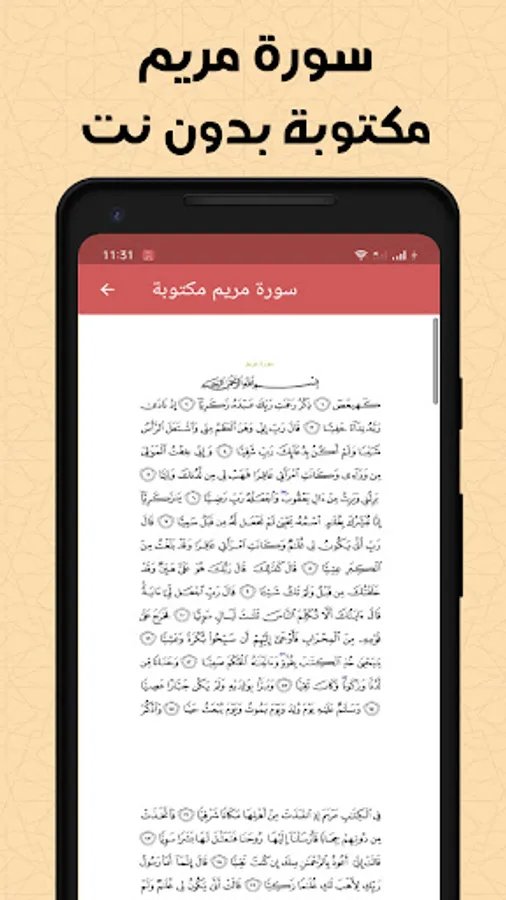 سورة مريم
مكتوبة بدون نت
11:31
سورة مريم مكتوبة
سورة مريم
بِسْمِ ٱللَّهِ ٱلرَّحْمَٰنِ ٱلرَّحِيمِ
كٓهيعٓصٓ ١ ذِكْرُ رَحْمَتِ رَبِّكَ عَبْدَهُۥ زَكَرِيَّآ ٢ إِذْ نَادَىٰ
رَبَّهُۥ نِدَآءً خَفِيًّا ٣ قَالَ رَبِّ إِنِّي وَهَنَ ٱلْعَظْمُ مِنِّي وَٱشْتَعَلَ ٱلرَّأْسُ
شَيْبًا وَلَمْ أَكُنۢ بِدُعَآئِكَ رَبِّ شَقِيًّا ٤ وَإِنِّي خِفْتُ ٱلْمَوَٰلِيَ
مِن وَرَآءِي وَكَانَتِ ٱمْرَأَتِي عَاقِرًا فَهَبْ لِي مِن لَّدُنكَ وَلِيًّا ٥
يَرِثُنِي وَيَرِثُ مِنْ ءَالِ يَعْقُوبَ وَٱجْعَلْهُ رَبِّ رَضِيًّا ٦ يَٰزَكَرِيَّآ
إِنَّا نُبَشِّرُكَ بِغُلَٰمٍ ٱسْمُهُۥ يَحْيَىٰ لَمْ نَجْعَل لَّهُۥ مِن قَبْلُ سَمِيًّا ٧ قَالَ
رَبِّ أَنَّىٰ يَكُونُ لِي غُلَٰمٌ وَكَانَتِ ٱمْرَأَتِي عَاقِرًا وَقَدْ بَلَغْتُ مِنَ
ٱلْكِبَرِ عِتِيًّا ٨ قَالَ كَذَٰلِكَ قَالَ رَبُّكَ هُوَ عَلَيَّ هَيِّنٌ وَقَدْ
خَلَقْتُكَ مِن قَبْلُ وَلَمْ تَكُ شَيْئًا ٩ قَالَ رَبِّ ٱجْعَل لِّي ءَايَةً
قَالَ ءَايَتُكَ أَلَّا تُكَلِّمَ ٱلنَّاسَ ثَلَٰثَ لَيَالٍ سَوِيًّا ١٠ فَخَرَجَ عَلَىٰ
قَوْمِهِۦ مِنَ ٱلْمِحْرَابِ فَأَوْحَىٰٓ إِلَيْهِمْ أَن سَبِّحُوا۟ بُكْرَةً وَعَشِيًّا ١١
يَٰيَحْيَىٰ خُذِ ٱلْكِتَٰبَ بِقُوَّةٍ وَءَاتَيْنَٰهُ ٱلْحُكْمَ صَبِيًّا ١٢ وَحَنَانًا مِّن
لَّدُنَّا وَزَكَوٰةً وَكَانَ تَقِيًّا ١٣ وَبَرًّۢا بِوَٰلِدَيْهِ وَلَمْ يَكُن جَبَّارًا عَصِيًّا
١٤ وَسَلَٰمٌ عَلَيْهِ يَوْمَ وُلِدَ وَيَوْمَ يَمُوتُ وَيَوْمَ يُبْعَثُ حَيًّا ١٥ وَٱذْكُرْ
فِي ٱلْكِتَٰبِ مَرْيَمَ إِذِ ٱنتَبَذَتْ مِنْ أَهْلِهَا مَكَانًا شَرْقِيًّا ١٦ فَٱتَّخَذَتْ
مِن دُونِهِمْ حِجَابًا فَأَرْسَلْنَآ إِلَيْهَا رُوحَنَا فَتَمَثَّلَ لَهَا بَشَرًا سَوِيًّا ١٧
قَالَتْ إِنِّيٓ أَعُوذُ بِٱلرَّحْمَٰنِ مِنكَ إِن كُنتَ تَقِيًّا ١٨ قَالَ إِنَّمَآ أَنَا۠ رَسُولُ
رَبِّكِ لِأَهَبَ لَكِ غُلَٰمًا زَكِيًّا ١٩ قَالَتْ أَنَّىٰ يَكُونُ لِي غُلَٰمٌ وَلَمْ